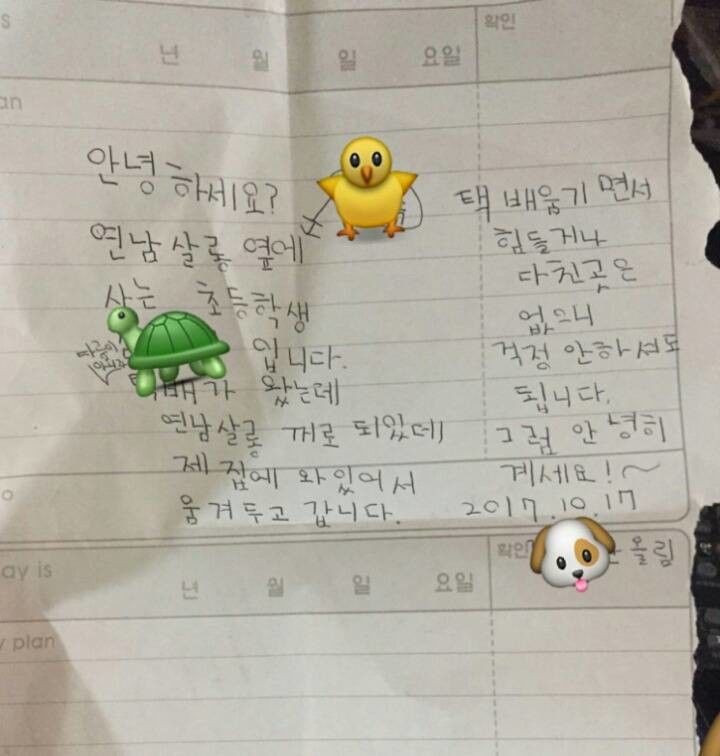 확인
년 월 일 요일
안녕하세요?
연남살롱 옆에
사는 초등학생
입니다.
택배가 왔는데
연남살롱 꺼로 되있데
제 집에 와있어서
움겨두고 갑니다.
택배움기면서
힘들거나
다친곳은
없으니
걱정 안하셔도
됩니다.
그럼 안녕히
계세요!~
2017.10.17
올림
ay is
확인
년 월 일 요일
plan